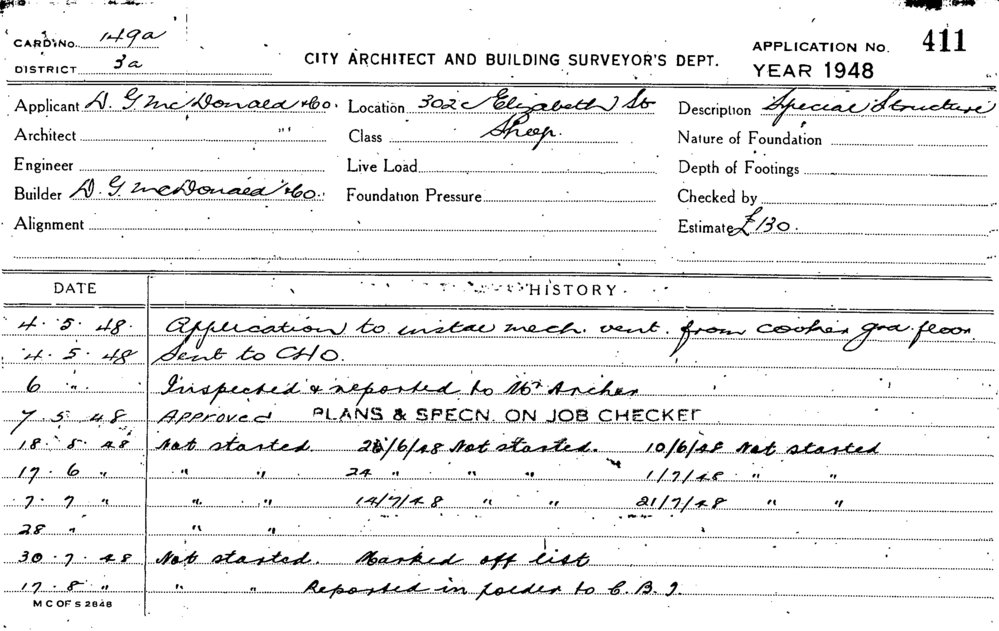 CARD No. 149a
DISTRICT 3a
CITY ARCHITECT AND BUILDING SURVEYOR'S DEPT.
APPLICATION No. 411
YEAR 1948
Applicant D. G. McDonald & Co. Location 302c Elizabeth St Description Special Structure
Architect " Class Shop. Nature of Foundation
Engineer Live Load Depth of Footings
Builder D. G. McDonald & Co. Foundation Pressure Checked by
Alignment Estimate £130.
DATE HISTORY
4. 5. 48. Application to instal mech. vent. from cooker grd. floor
4. 5. 48 Sent to CHO.
6 " Inspected & reported to Mr Archer
7. 5. 48 Approved PLANS & SPECN. ON JOB CHECKED
18. 5. 48 Not started. /6/48 Not started. 10/6/48 Not started
17. 6 " " " 24 " " " 1/7/48 " "
7. 7 " " " 14/7/48 " " 21/7/48 " "
28 " " "
30. 7. 48 Not started. Marked off list
17. 8 " " " Reported in folder to C. B. I.
M C OF S 2848